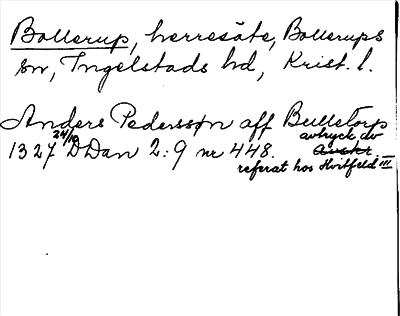 Bollerup, herresäte, Bollerups
sn, Ingelstads hd, Krist. l.
Anders Pederssøn aff Bulletorp
1327 24/10 DDan 2:9 nr 448. avtryck av
Avskr.
referat hos Hvitfeld III